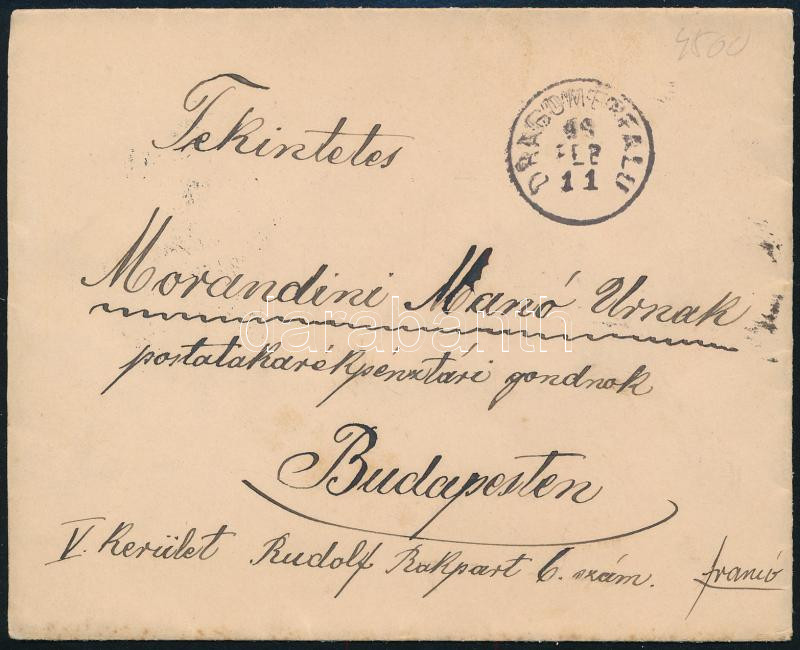 4800
Tekintetes
DRAGOMÉRFALU
98
FEB
11
Morandini Manó Urnak
darabanth
postatakarékpénztári gondnok
Budapesten
V. Kerület Rudolf Rakpart 6. szám.
francó